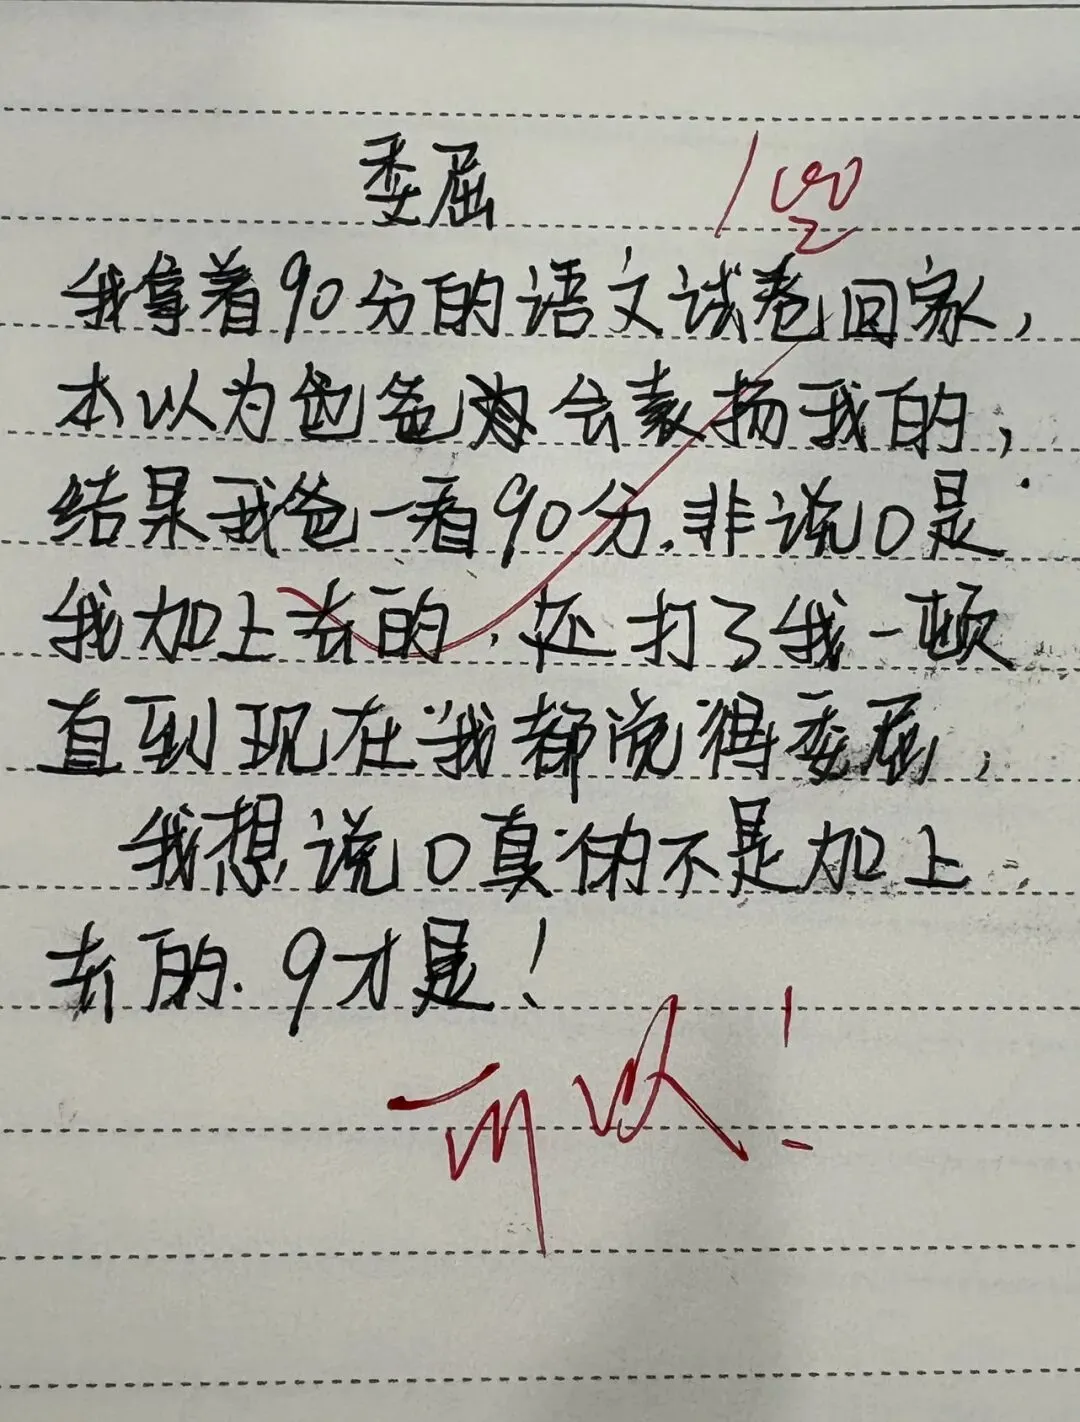 委屈 100
我拿着90分的语文试卷回家,
本以为爸爸会表扬我的,
结果我爸一看90分,非说0是
我加上去的,还打了我一顿
直到现在我都觉得委屈,
我想说0真的不是加上
去的.9才是!
可以!